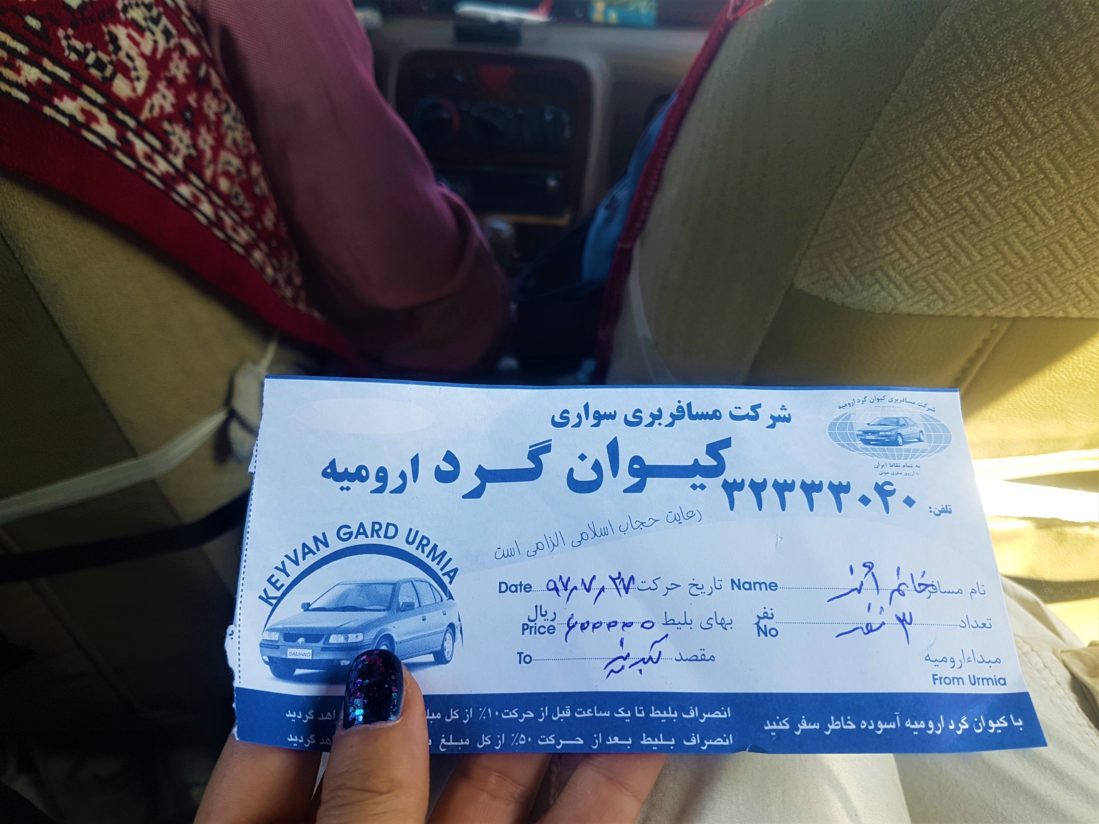 شرکت مسافربری سواری
کیوان گرد ارومیه
شرکت مسافربری کیوان گرد ارومیه
به تمام نقاط ایران
تلفن: ۳۲۳۳۳۰۴۰
رعایت حجاب اسلامی الزامی است
KEYVAN GARD URMIA
SAMAND
نام مسافر خانم Name تاریخ حرکت ۹۷,۷,۲۷ Date
تعداد ۳ نفر نفر No بهای بلیط ۶۰۰۰۰۰ ریال Price
مبداءارومیه From Urmia مقصد To
با کیوان گرد ارومیه آسوده خاطر سفر کنید
انصراف بلیط تا یک ساعت قبل از حرکت ۱۰٪ از کل گردید
انصراف بلیط بعد از حرکت ۵۰٪ از کل مبلغ گردید